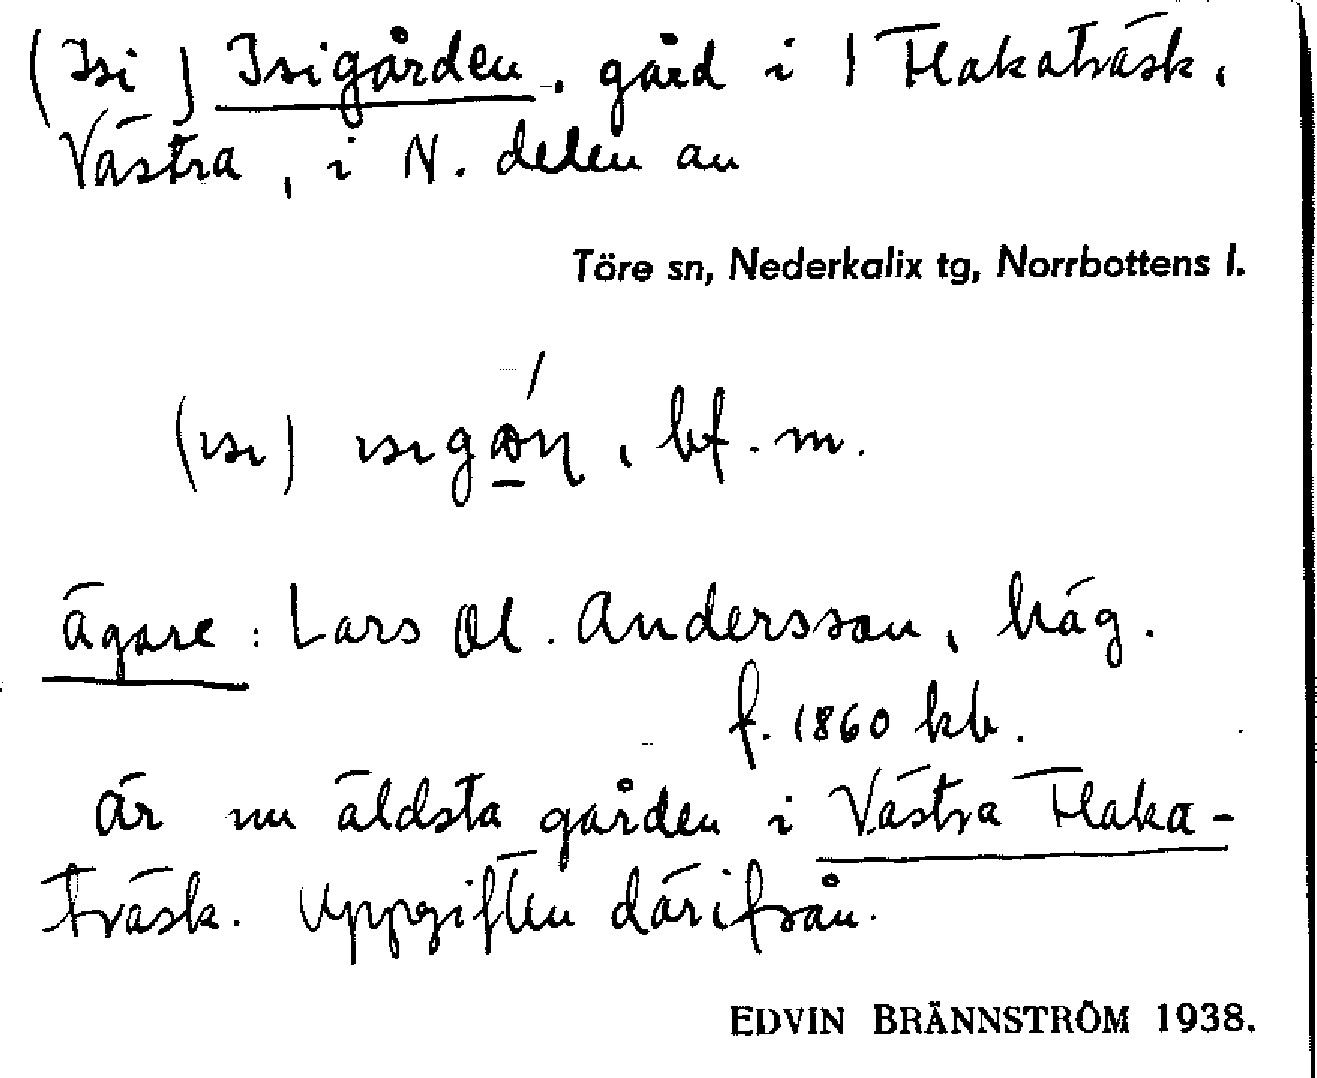 (Isi) Isigården, gård i 1 Flakaträsk,
Västra, i N. delen av
Töre sn, Nederkalix tg, Norrbottens l.
(ısı) bf. m.
Ägare: Lars Ol. Andersson, häg.
f. 1860 kb.
Är nu äldsta gården i Västra Flaka-
träsk. Uppgiften därifrån.
EDVIN BRÄNNSTRÖM 1938.